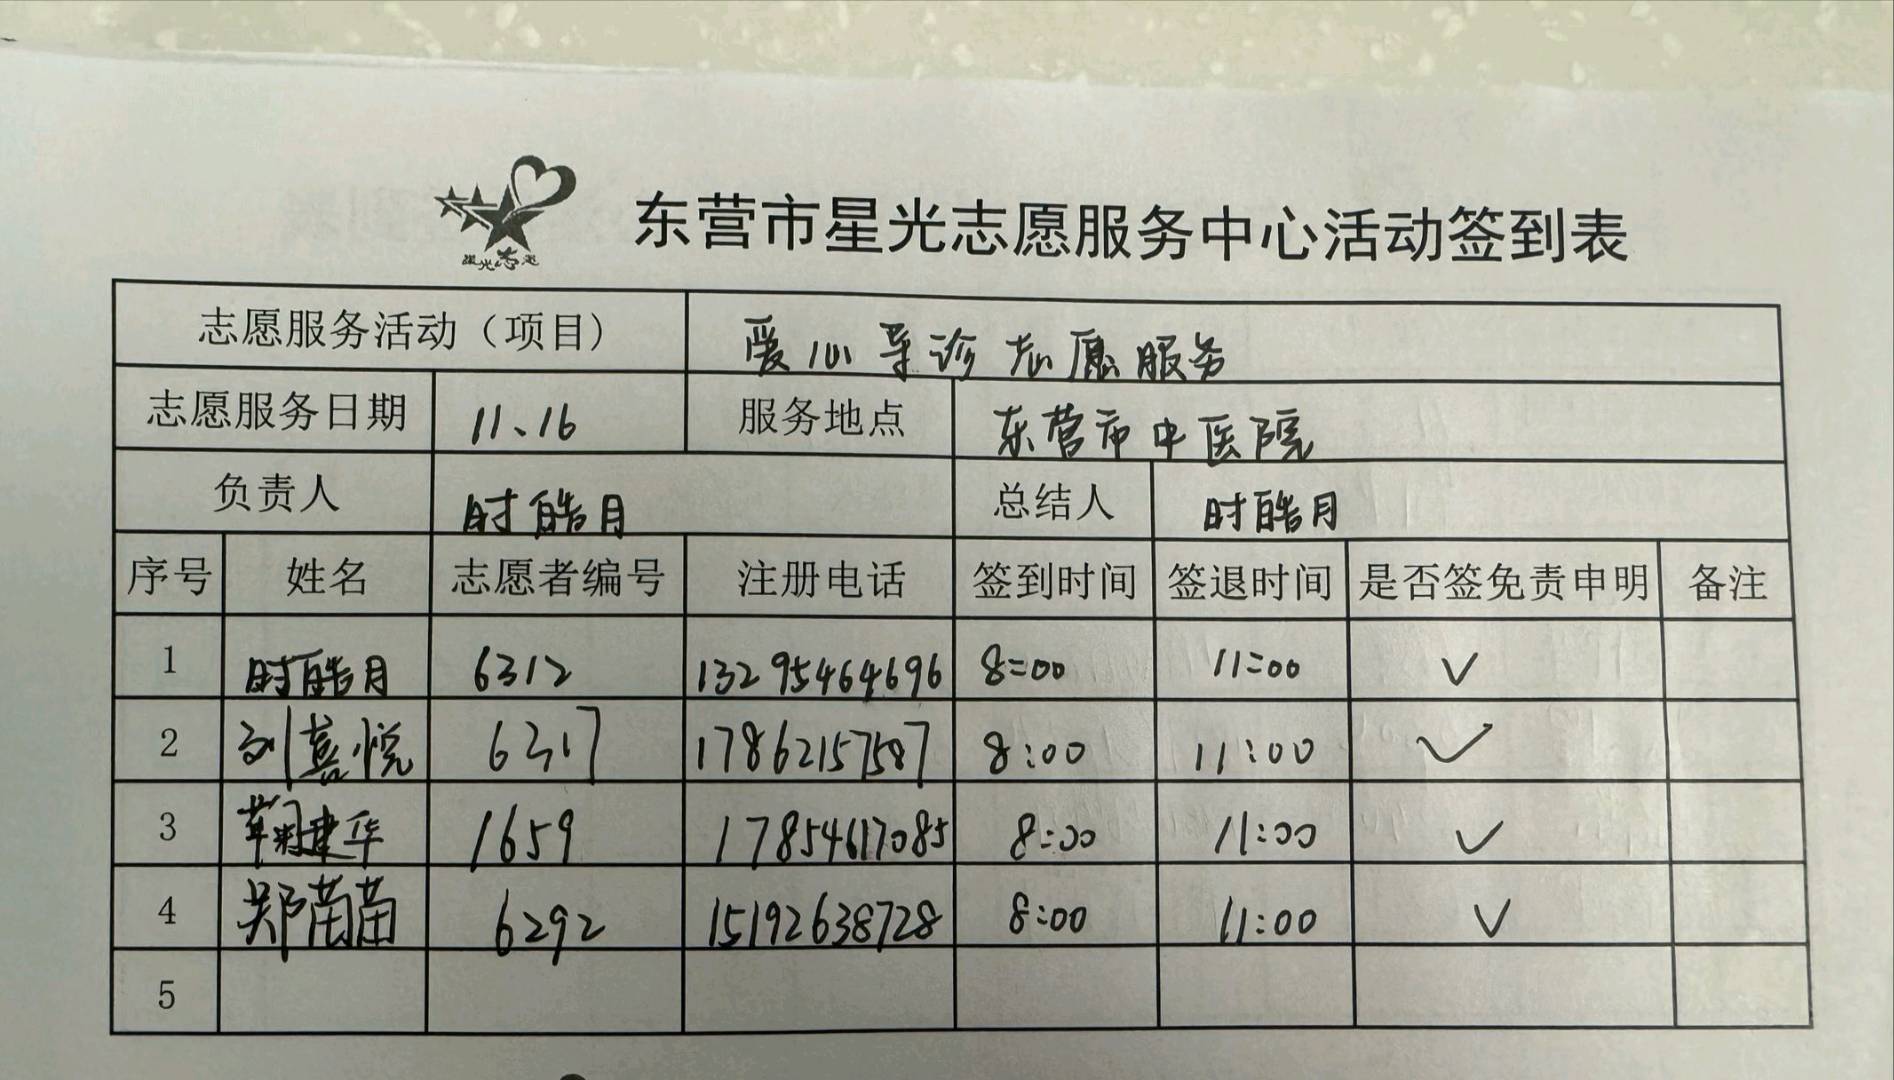 星光志愿
东营市星光志愿服务中心活动签到表
志愿服务活动（项目） 爱心导诊志愿服务
志愿服务日期 11、16 服务地点 东营市中医院
负责人 时皓月 总结人 时皓月
序号 姓名 志愿者编号 注册电话 签到时间 签退时间 是否签免责申明 备注
1 时皓月 6312 13295464696 8:00 11:00 ✓
2 刘嘉悦 6317 17862157587 8:00 11:00 ✓
3 建华 1659 17854617085 8:00 11:00 ✓
4 郑苗苗 6292 15192638728 8:00 11:00 ✓
5